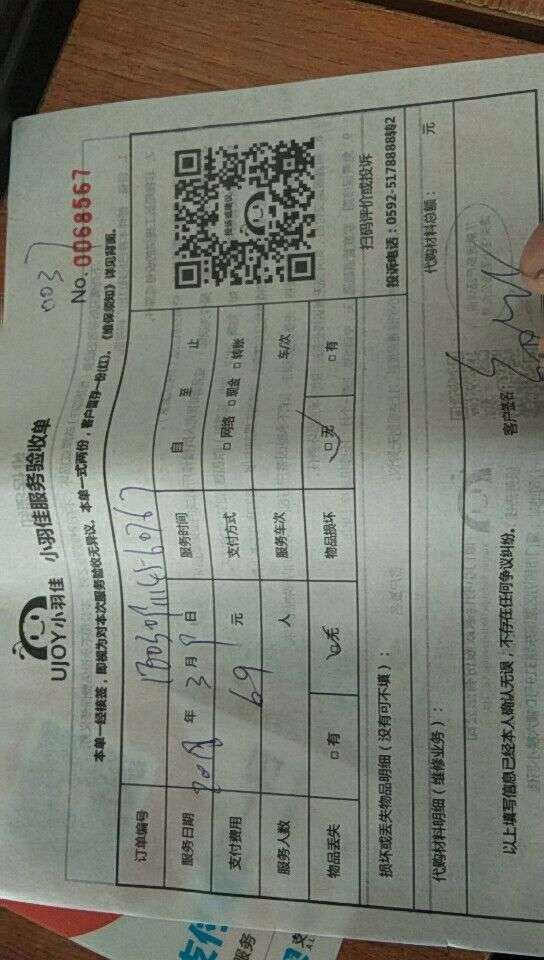 0037
UJOY小羽佳 小羽佳服务验收单 No. 0068567
本单一经核签，即视为对本次服务验收无异议。本单一式两份，客户留存一份(红)。《维保须知》详见背面。
订单编号
服务日期 2018 年 3 月 9 日 服务时间 自 至 止
支付费用 69 元 支付方式 □ 网络 □ 现金 □ 转账
服务人数 人 服务车次 车/次
物品丢失 □ 有 □ 无 物品损坏 □ 无 □ 有
投诉或建议
扫码评价或投诉
投诉电话：0592-5178888转2
损坏或丢失物品明细（没有可不填）：
代购材料明细（维修业务）： 代购材料总额： 元
以上填写信息已经本人确认无误，不存在任何争议纠纷。 客户签名